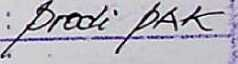 : prodi PAK